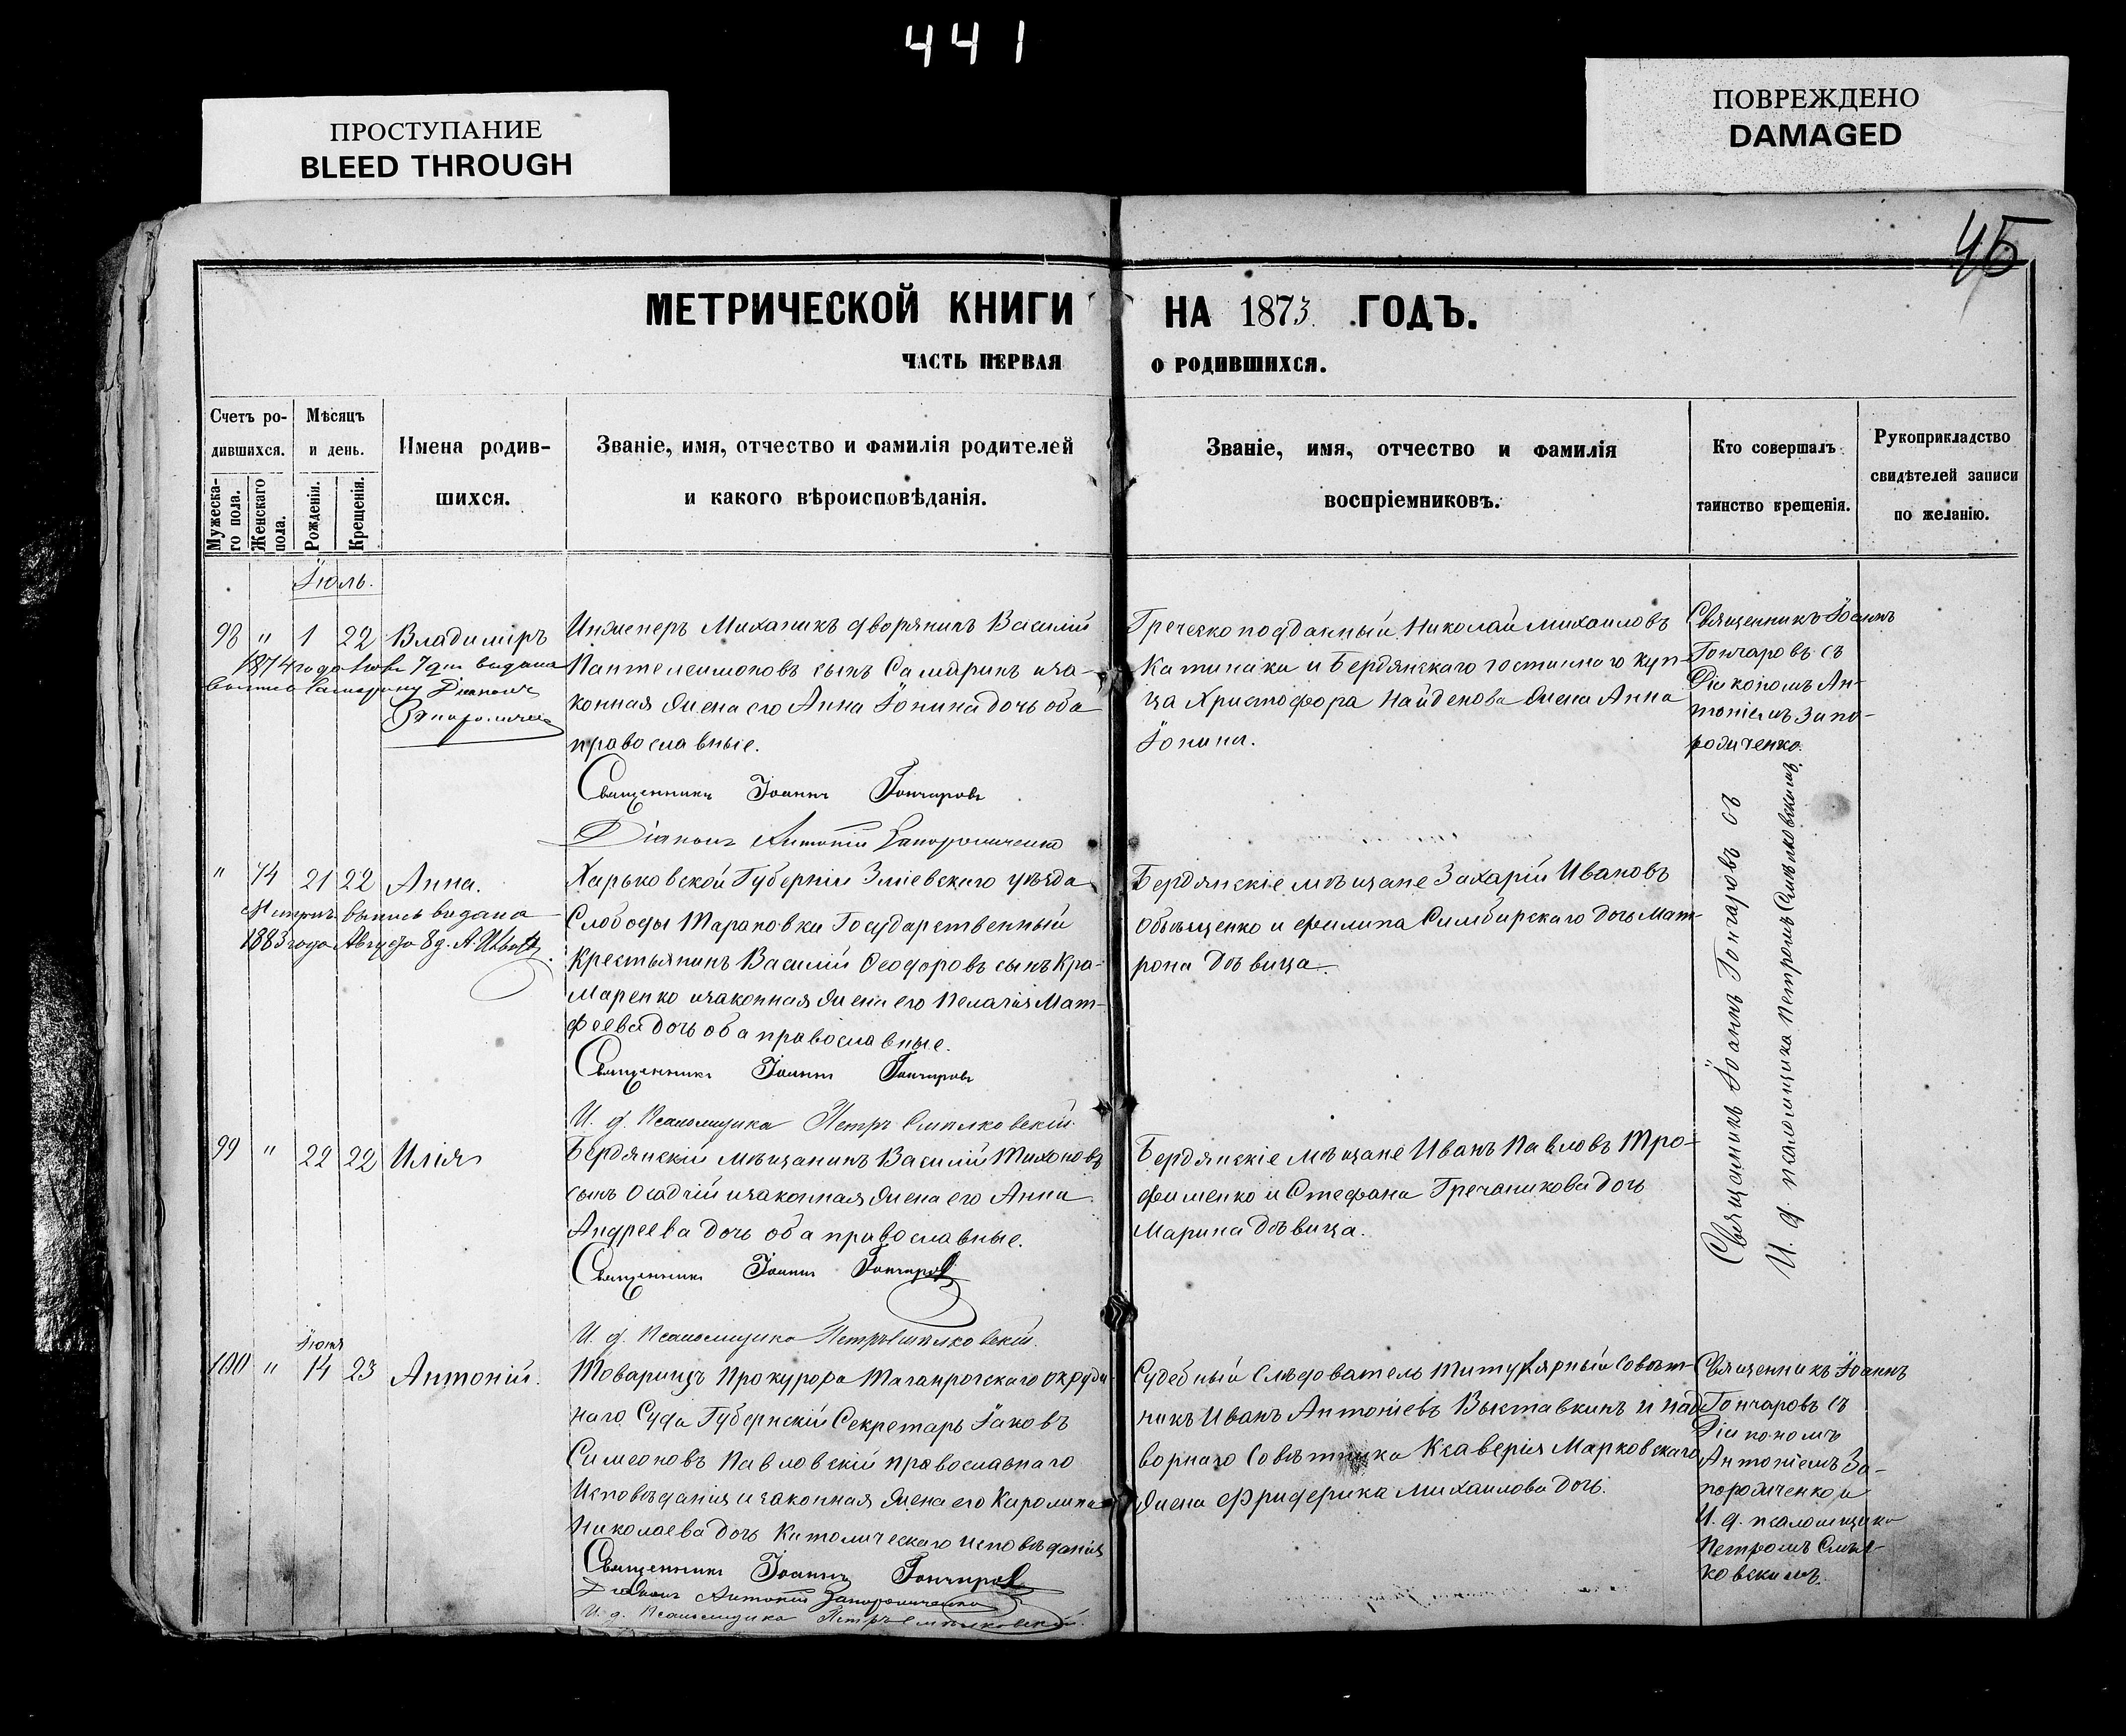 441
ПРОСТУПАНИЕ
BLEED THROUGH
ПОВРЕЖДЕНО
DAMAGED
45
МЕТРИЧЕСКОЙ КНИГИ НА 1873 ГОДЪ.
ЧАСТЬ ПЕРВАЯ О РОДИВШИХСЯ.
Счетъ ро-
дившихся.
Мужеска-
го пола.
Женскаго
пола.
Мѣсяцъ
и день.
Рожденія.
Крещенія.
Имена родив-
шихся.
Званіе, имя, отчество и фамилія родителей
и какого вѣроисповѣданія.
Званіе, имя, отчество и фамилія
воспріемниковъ.
Кто совершалъ
таинство крещенія.
Рукоприкладство
свидѣтелей записи
по желанію.
Іюль.
98 " 1 22 Владиміръ
1874 года 7 дня выдана
Самарину Діаконъ
Инженеръ Механикъ дворянинъ Василій
Пантелеимоновъ сынъ Самаринъ иза-
конная жена его Анна Іонина дочь оба
православные.
Священникъ Іоаннъ Гончаровъ
Діаконъ Антоній Запорожченко
Греческо подданный Николай Михаиловъ
Катинаки и Бердянскаго гостиннаго куп-
ца Христофора Найденова жена Анна
Іонина.
Священникъ Іоаннъ
Гончаровъ съ
Діакономъ Ан-
тоніемъ Запо-
рожченко.
" 74 21 22 Анна.
Метрич. выпись выдана
1883 года Августа 8 д.
Харьковской Губерніи Зміевскаго уѣзда
Слободы Тарановки Государственный
Крестьянинъ Василій Ѳеодоровъ сынъ Кра-
маренко изаконная жена его Пелагія Мат-
феева дочь оба православные.
Священникъ Іоаннъ Гончаровъ
И. д. Псаломщика Петръ Смѣлковскій.
Бердянскіе мѣщане Захарій Ивановъ
и Филипа Симбирскаго дочь Мат-
рона дѣвица.
Священникъ Іоаннъ Гончаровъ съ
И. д. псаломщика Петромъ Смѣлковскимъ.
99 " 22 22 Илія
Бердянскій мѣщанинъ Василій Тихоновъ
сынъ Осадчій изаконная жена его Анна
Андреева дочь оба православные.
Священникъ Іоаннъ Гончаровъ
И. д. Псаломщика Петръ Смѣлковскій.
Бердянскіе мѣщане Иванъ Павловъ Тро-
фименко и Стефана Гречаникова дочь
Марина дѣвица.
Іюня
100 " 14 23 Антоній.
Товарищъ Прокурора Таганрогскаго окруж-
наго Суда Губернскій Секретарь Іаковъ
Симеоновъ Павловскій православнаго
Исповѣданія изаконная жена его Каролина
Николаева дочь Католическаго исповѣданія
Священникъ Іоаннъ Гончаровъ
Діаконъ Антоній Запорожченко
И. д. Псаломщика Петръ Смѣлковскій.
Судебный Слѣдователь Титулярный Совѣт-
никъ Иванъ Антоніевъ Выставкинъ и над-
ворнаго Совѣтника Ксаверія Марковскаго
жена Фридерика Михаилова дочь.
Священникъ Іоаннъ
Гончаровъ съ
Діакономъ
Антоніемъ За-
порожченко и
И. д. псаломщика
Петромъ Смѣл-
ковскимъ.